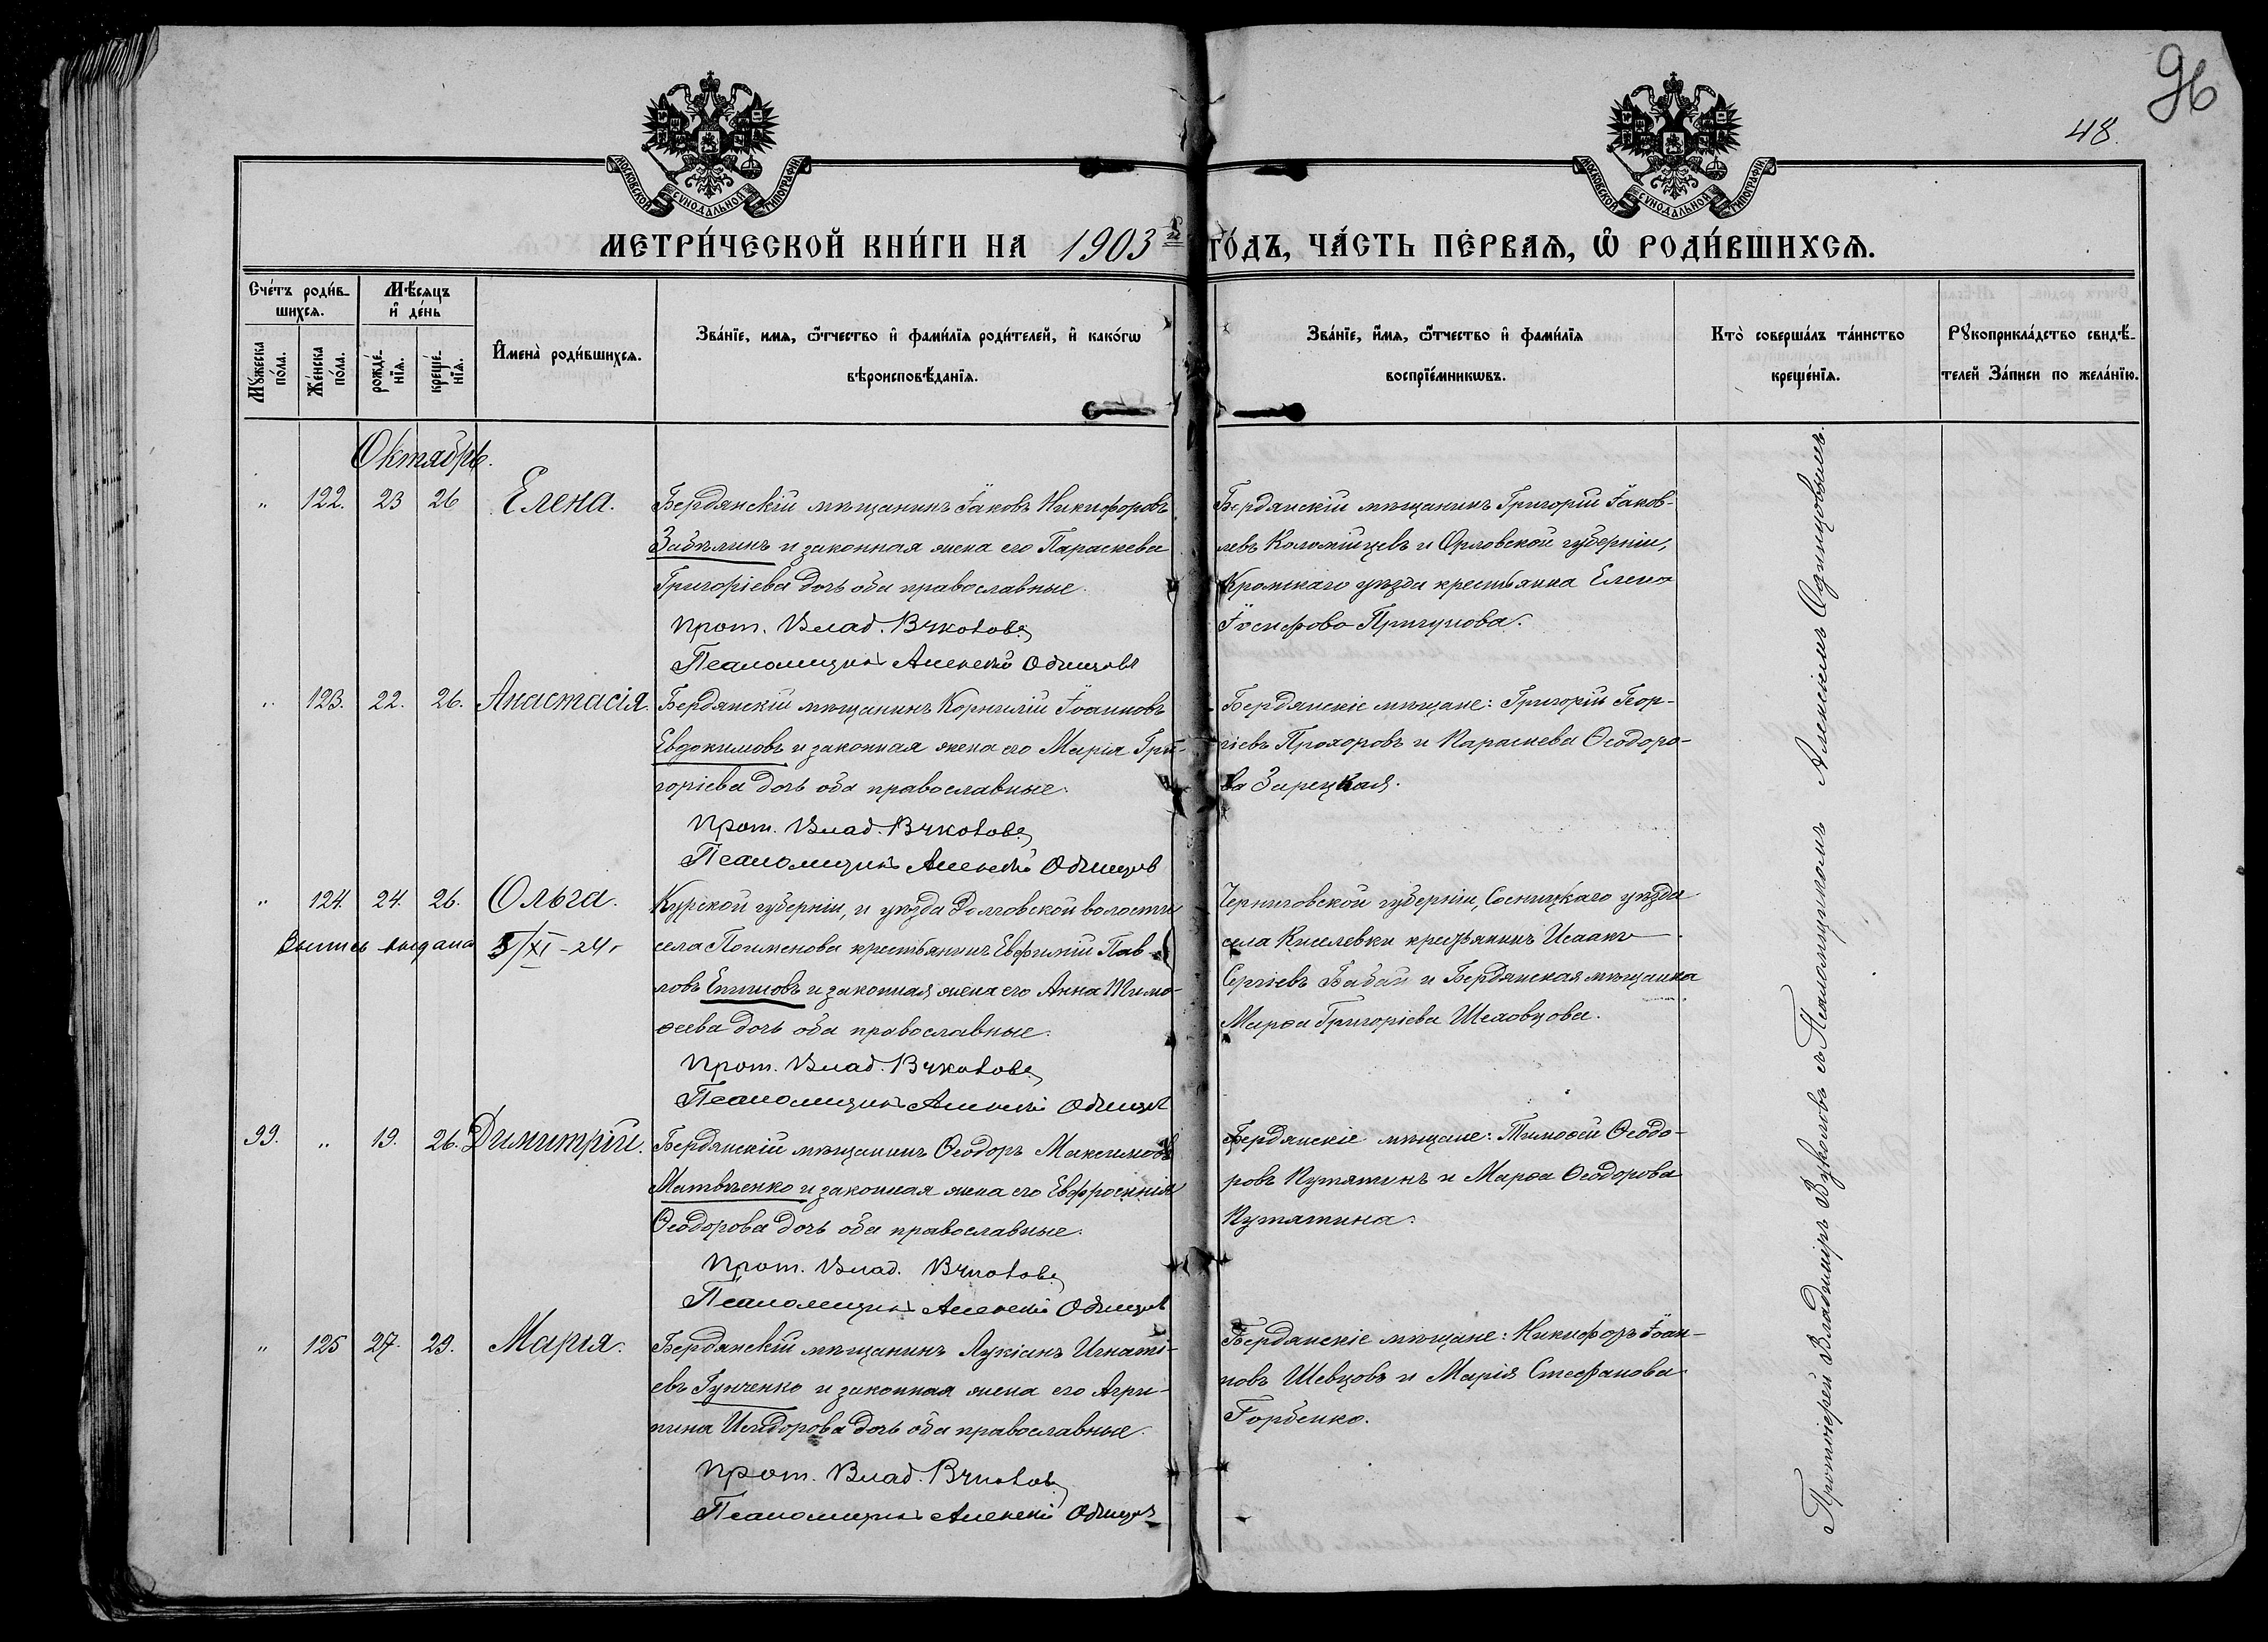 96
48.
МОСКОВСКОЙ СѴНОДАЛЬНОЙ ТИПОГРАФІИ
МОСКОВСКОЙ СѴНОДАЛЬНОЙ ТИПОГРАФІИ
МЕТРИ́ЧЕСКОЙ КНИ́ГИ НА 1903й ГО́ДЪ, ЧА́СТЬ ПЕ́РВАѦ, Ѿ РОДИ́ВШИХСѦ.
Сче́тъ роди́в-
шихсѧ.
Мѣ́сѧцъ
и҆ де́нь
Мꙋ́жеска по́ла.
Же́нска по́ла.
рожде́-нїѧ.
креще́-нїѧ.
И҆мена̀ роди́вшихсѧ.
Зва́нїе, имѧ, ѻ҆́тчество и҆ фами́лїѧ роди́телей, и҆ како́гѡ
вѣроисповѣ́данїѧ.
Зва́нїе, и҆́мѧ, ѻ҆́тчество и҆ фами́лїѧ
воспрїе́мникѡвъ.
Кто̀ соверша́лъ та́инство
креще́нїѧ.
Рꙋкоприкла́дство свидѣ́-
телей За́писи по жела́нїю.
Октябрь.
" 122. 23 26 Елена.
Бердянскій мѣщанинъ Іаковъ Никифоровъ
Забѣлинъ и законная жена его Параскева
Григоріева дочь оба православные.
Прот. Влад. Вуколовъ
Псаломщикъ Алексѣй Одинцовъ
Бердянскій мѣщанинъ Григорій Іаков-
левъ Коломійцевъ и Орловской губерніи,
Кромскаго уѣзда крестьянка Елена
Іосифова Пригунова.
" 123. 22. 26. Анастасія.
Бердянскій мѣщанинъ Корнилій Іоанновъ
Евдокимовъ и законная жена его Марія Гри-
горіева дочь оба православные.
Прот. Влад. Вуколовъ
Псаломщикъ Алексѣй Одинцовъ
Бердянскіе мѣщане: Григорій Геор-
гіевъ Прохоровъ и Параскева Ѳеодоро-
ва Зарецкая.
" 124. 24. 26. Ольга.
Выпись выдана 5/XI-24г
Курской губерніи, и уѣзда Долговской волости
села Поименова крестьянинъ Евфимій Пав-
ловъ Епишовъ и законная жена его Анна Тимо-
ѳеева дочь оба православные.
Прот. Влад. Вуколовъ
Псаломщикъ Алексѣй Одинцовъ
Черниговской губерніи, Сосницкаго уѣзда
села Киселевки крестьянинъ Исаакъ
Сергіевъ Бабай и Бердянская мѣщанка
Марѳа Григоріева Шеховцова.
99. " 19. 26. Димитрій.
Бердянскій мѣщанинъ Ѳеодоръ Максимовъ
Матвѣенко и законная жена его Евфросинія
Ѳеодорова дочь оба православные.
Прот. Влад. Вуколовъ
Псаломщикъ Алексѣй Одинцовъ
Бердянскіе мѣщане: Тимоѳей Ѳеодо-
ровъ Путятинъ и Марѳа Ѳеодорова
Путятина.
" 125 27. 29. Марія.
Бердянскій мѣщанинъ Лукіанъ Игнаті-
евъ Гунченко и законная жена его Агри-
пина Исидорова дочь оба православные.
Прот. Влад. Вуколовъ
Псаломщикъ Алексѣй Одинцовъ
Бердянскіе мѣщане: Никифоръ Іоан-
новъ Шевцовъ и Марія Стефанова
Горбенко.
Протоіерей Владиміръ Вуколовъ съ Псаломщикомъ Алексѣемъ Одинцовымъ.